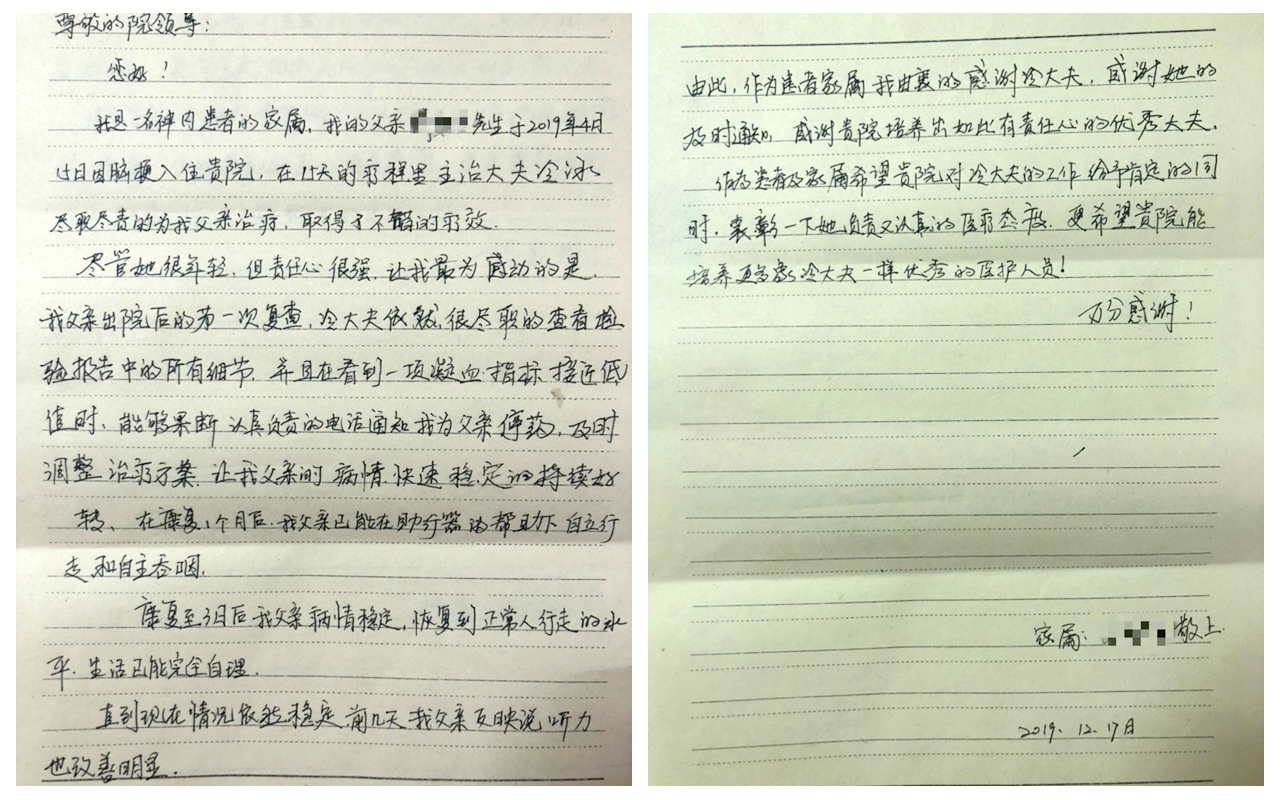 尊敬的院领导：
您好！
我是一名神内患者的家属，我的父亲先生于2019年4月
15日因脑梗入住贵院，在15天的疗程里主治大夫冷泳
尽职尽责的为我父亲治疗，取得了不错的疗效.
尽管她很年轻，但责任心很强，让我最为感动的是，
我父亲出院后的第一次复查，冷大夫依就很尽职的查看检
验报告中的所有细节，并且在看到一项凝血指标接近低
值时、能够果断认真负责的电话通知我为父亲停药，及时
调整治疗方案，让我父亲的病情快速稳定的持续好
转、在康复1个月后，我父亲已能在助行器的帮助下自立行
走和自主吞咽.
康复至3月后我父亲病情稳定，恢复到正常人行走的水
平，生活已能完全自理.
直到现在情况依然稳定，前几天我父亲反映说听力
也改善明显.
由此，作为患者家属我由衷的感谢冷大夫，感谢她的
及时通知，感谢贵院培养出如此有责任心的优秀大夫.
作为患者及家属希望贵院对冷大夫的工作给予肯定的同
时，表彰一下她负责又认真的医疗态度，更希望贵院能
培养更多象冷大夫一样优秀的医护人员！
万分感谢！
家属：敬上.
2019. 12. 17日